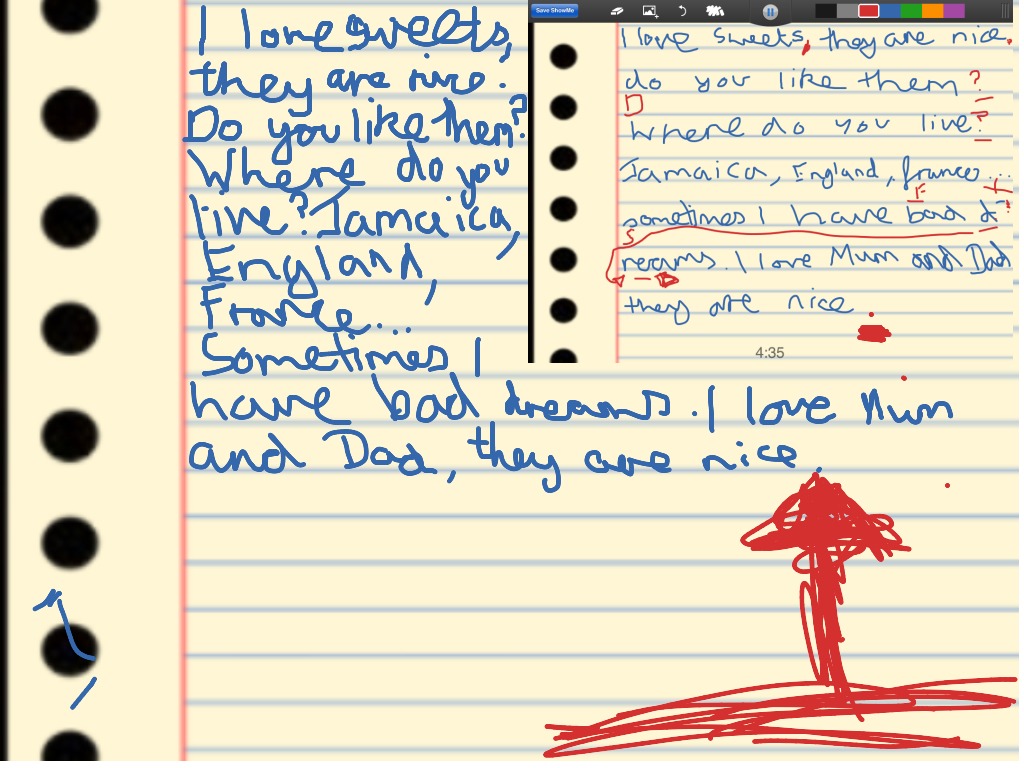 I love sweets,
they are nice.
Do you like them?
Where do you
live? Jamaica,
England,
France...
Sometimes I
have bad dreams. I love Mum
and Dad, they are nice.
Save ShowMe
I love sweets, they are nice.
do you like them?
D
Where do you live?
Jamaica, England, france...
F
sometimes I have bad d
S
reams. I love Mum and Dad
they are nice.
4:35